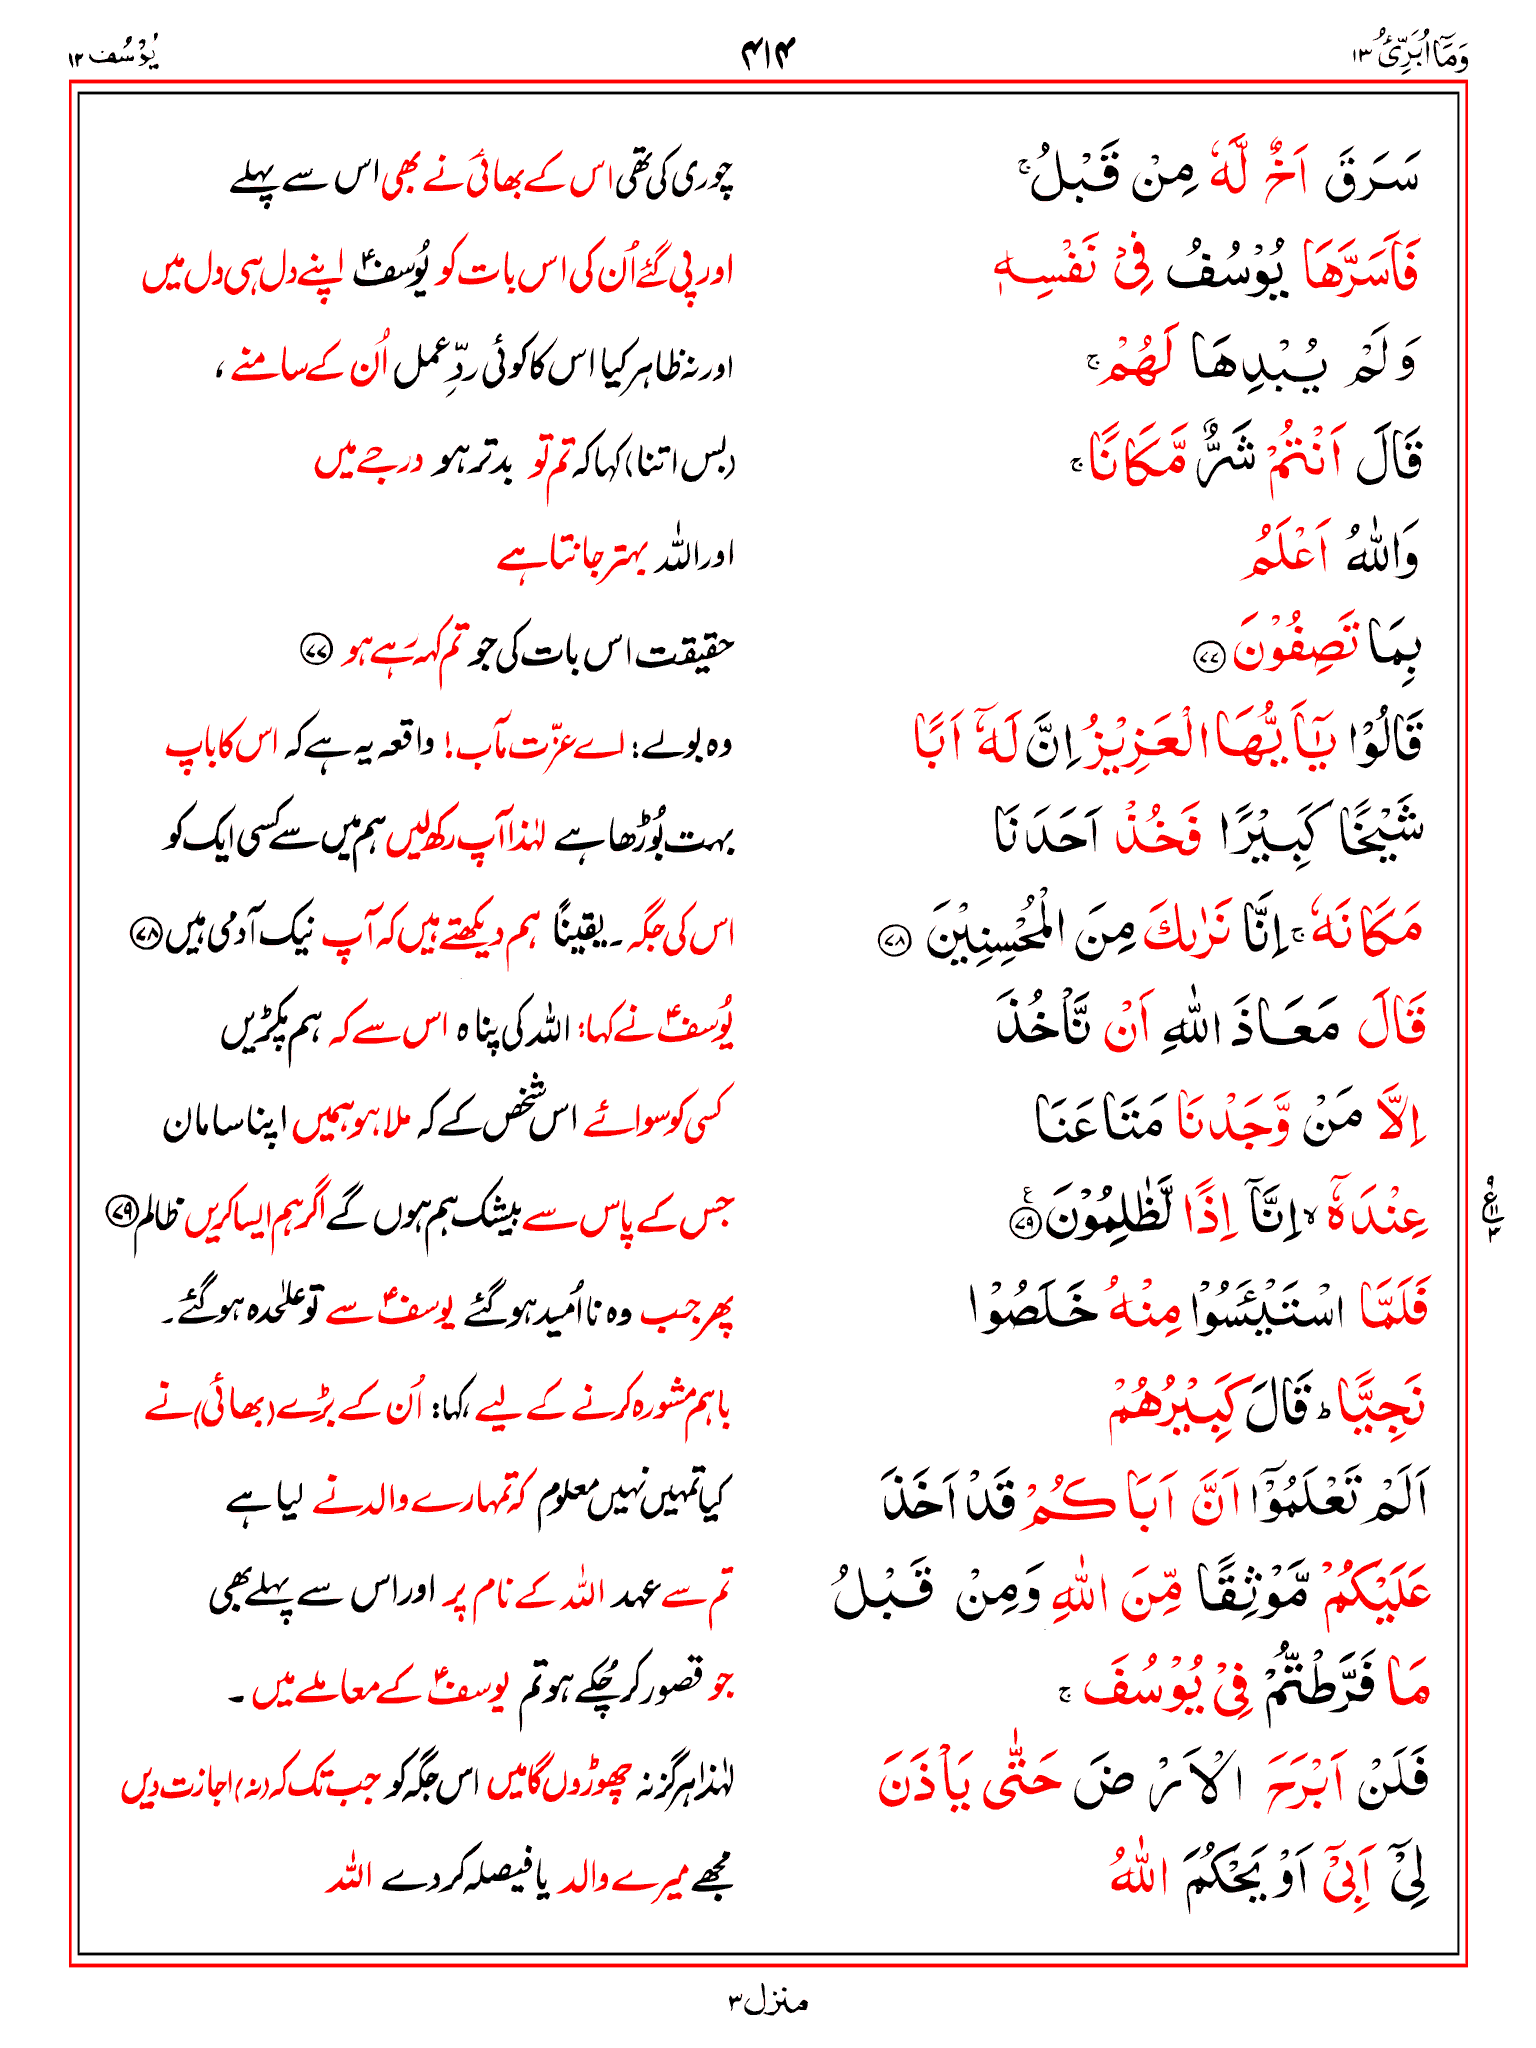 وَمَآ اُبَرِّئُ ۱۳ ۴۱۴ یُوْسُف ۱۲
سَرَقَ اَخٌ لَّهٗ مِنْ قَبْلُ ۚ چوری کی تھی اس کے بھائی نے بھی اس سے پہلے
فَاَسَرَّهَا یُوْسُفُ فِیْ نَفْسِهٖ اور پی گئے اُن کی اس بات کو یُوسفؑ اپنے دل ہی دل میں
وَلَمْ یُبْدِهَا لَهُمْ ۚ اور نہ ظاہر کیا اس کا کوئی ردِّعمل اُن کے سامنے ،
قَالَ اَنْتُمْ شَرٌّ مَّكَانًا ۚ (بس اتنا) کہا کہ تم تو بدتر ہو درجے میں
وَاللّٰهُ اَعْلَمُ اور اللّٰہ بہتر جانتا ہے
بِمَا تَصِفُوْنَ ۷۷ حقیقت اس بات کی جو تم کہہ رہے ہو ۷۷
قَالُوْا یٰۤاَیُّهَا الْعَزِیْزُ اِنَّ لَهٗۤ اَبًا وہ بولے: اے عزّت مآب! واقعہ یہ ہے کہ اس کا باپ
شَیْخًا كَبِیْرًا فَخُذْ اَحَدَنَا بہت بُوڑھا ہے لہٰذا آپ رکھ لیں ہم میں سے کسی ایک کو
مَكَانَهٗ ۚ اِنَّا نَرٰىكَ مِنَ الْمُحْسِنِیْنَ ۷۸ اس کی جگہ ۔ یقیناً ہم دیکھتے ہیں کہ آپ نیک آدمی ہیں ۷۸
قَالَ مَعَاذَ اللّٰهِ اَنْ نَّاْخُذَ یُوسفؑ نے کہا: اللّٰہ کی پناہ اس سے کہ ہم پکڑیں
اِلَّا مَنْ وَّجَدْنَا مَتَاعَنَا کسی کو سوائے اس شخص کے کہ ملا ہو ہمیں اپنا سامان
عِنْدَهٗۤ ۙ اِنَّاۤ اِذًا لَّظٰلِمُوْنَ ۷۹ جس کے پاس سے بیشک ہم ہوں گے اگر ہم ایسا کریں ظالم ۷۹
فَلَمَّا اسْتَیْـَٔسُوْا مِنْهُ خَلَصُوْا پھر جب وہ نااُمید ہوگئے یوسفؑ سے تو علٰحدہ ہوگئے ۔
نَجِیًّا ؕ قَالَ كَبِیْرُهُمْ باہم مشورہ کرنے کے لیے ،کہا: اُن کے بڑے (بھائی) نے
اَلَمْ تَعْلَمُوْۤا اَنَّ اَبَاكُمْ قَدْ اَخَذَ کیا تمہیں نہیں معلوم کہ تمہارے والد نے لیا ہے
عَلَیْكُمْ مَّوْثِقًا مِّنَ اللّٰهِ وَمِنْ قَبْلُ تم سے عہد اللّٰہ کے نام پر اور اس سے پہلے بھی
مَا فَرَّطْتُّمْ فِیْ یُوْسُفَ ۚ جو قصور کر چُکے ہو تم یوسفؑ کے معاملے میں ۔
فَلَنْ اَبْرَحَ الْاَرْضَ حَتّٰی یَاْذَنَ لہٰذا ہرگز نہ چھوڑوں گا میں اس جگہ کو جب تک کہ (نہ) اجازت دیں
لِیْۤ اَبِیْۤ اَوْ یَحْكُمَ اللّٰهُ مجھے میرے والد یا فیصلہ کردے اللّٰہ
منزل ۳